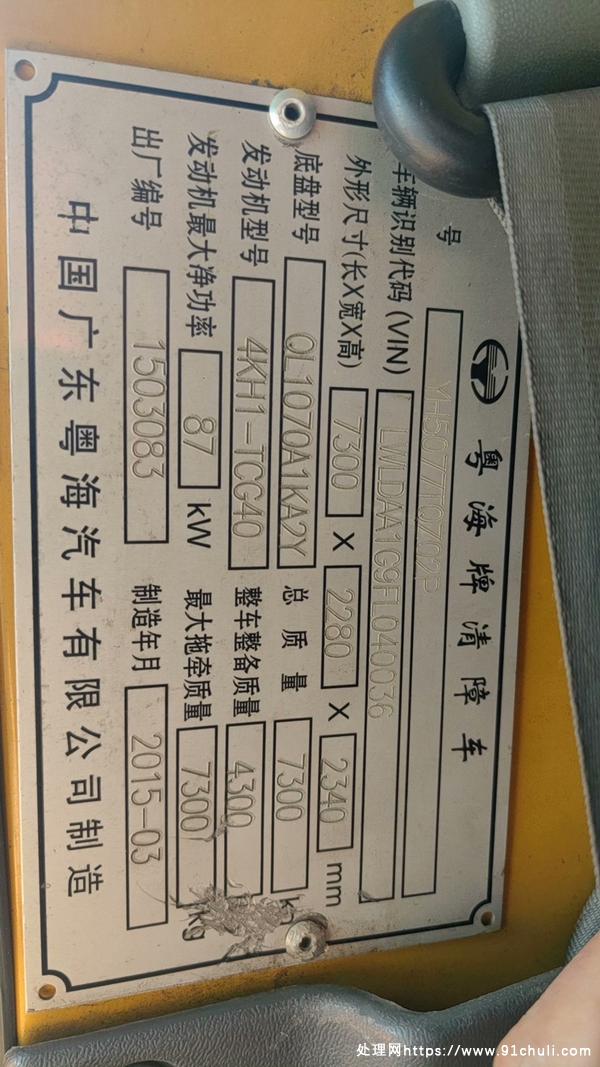 粤海牌清障车
号 YH5077TQZ02P
车辆识别代码(VIN) LWLDAA1G9FL040036
外形尺寸(长X宽X高) 7300 X 2280 X 2340 mm
底盘型号 QL1070A1KA2Y 总质量 7300
发动机型号 4KH1-TCG40 整车整备质量 4300
发动机最大净功率 87 kW 最大拖牵质量 7300 kg
出厂编号 1503083 制造年月 2015-03
中国广东粤海汽车有限公司制造
处理网https://www.91chuli.com